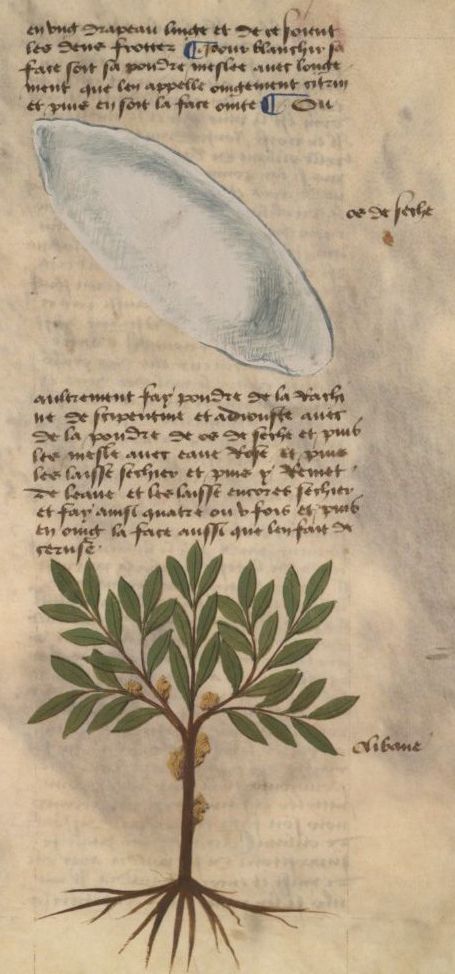 en vng drapeau linge et de ce soient
les dens frottez ¶ Pour blanchir sa
face soit sa poudre meslee auec longe
ment que len appelle oingement citrin
et puis en soit la face ointe ¶ Ou
os de seche
aultrement fay poudre de la Rachi
ne de serpentine et adiouste auec
de la poudre de os de seche et puis
les mesle auec eaue Rose et puis
les laisse sechier et puis y Remet
de leaue et les laisse encores sechier
et fay ainsi quatre ou v fois et puis
en oing la face aussi que len fait de
ceruse
Olibane